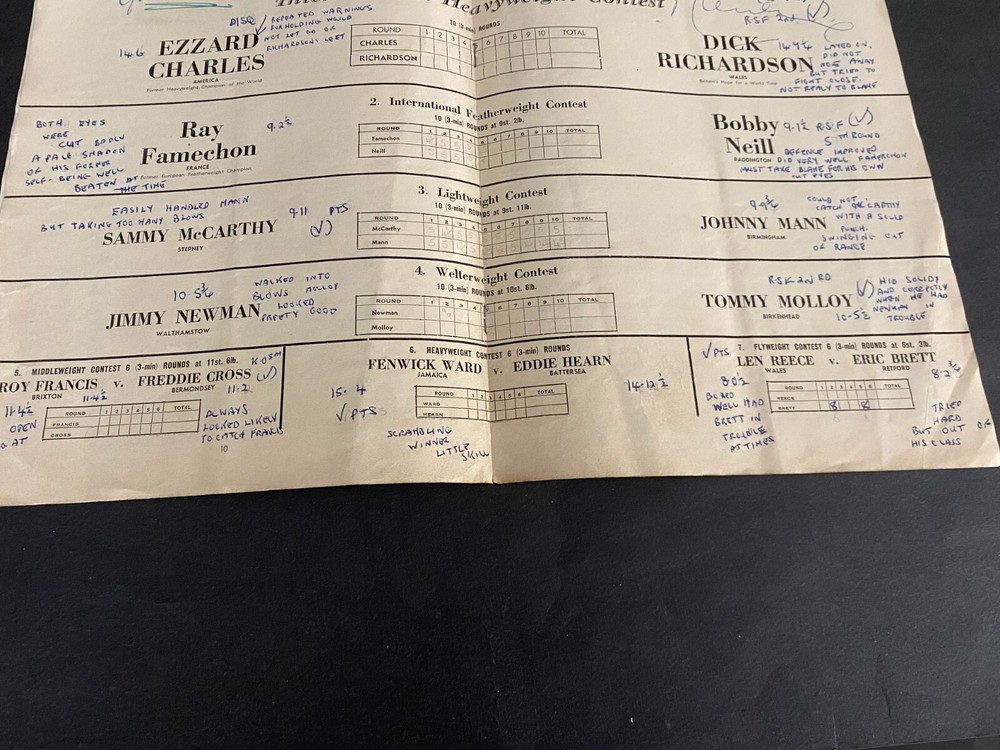 Heavyweight Contest
10 (3-min) ROUNDS
DISQ
REPEATED WARNINGS
FOR HOLDING WOULD
NOT LET GO OF
RICHARDSON'S LEFT
14.6
EZZARD
CHARLES
AMERICA
Former Heavyweight Champion of the World
ROUND 1 2 3 4 5 6 7 8 9 10 TOTAL
CHARLES
RICHARDSON
RSF 2nd
DICK
RICHARDSON
WALES
Britain's Hope for a World Title
LAYED ON.
DID NOT
AWAY
BUT TRIED TO
FIGHT CLOSE.
NOT REALY TO BLAME
2. International Featherweight Contest
10 (3-min) ROUNDS at 9st. 2lb.
BOTH EYES
WERE
CUT BADLY
A PALE SHADOW
OF HIS FORMER
SELF. BEING WELL
BEATEN AT
THE TIME
Ray
Famechon
FRANCE
Former European Featherweight Champion
9.2½
ROUND 1 2 3 4 5 6 7 8 9 10 TOTAL
Famechon
Neill
Bobby
Neill
PADDINGTON
R.S.F (√)
5TH ROUND
DEFENCE IMPROVED
DID VERY WELL FAMERCHON
MUST TAKE BLAME FOR HIS OWN
CUT EYES
3. Lightweight Contest
10 (3-min) ROUNDS at 9st. 11lb.
EASILY HANDLED MANN
BUT TAKING TOO MANY BLOWS
9.11 PTS
(√)
SAMMY McCARTHY
STEPNEY
ROUND 1 2 3 4 5 6 7 8 9 10 TOTAL
McCarthy
Mann
9.9¾
JOHNNY MANN
BIRMINGHAM
COULD NOT
CATCH McCARTHY
WITH A SOLID
PUNCH.
SWINGING OUT
OF RANGE
4. Welterweight Contest
10 (3-min) ROUNDS at 10st. 8lb.
10.5¾
JIMMY NEWMAN
WALTHAMSTOW
WALKED INTO
BLOWS MOLLOY
LOOKED
PRETTY GOOD
ROUND 1 2 3 4 5 6 7 8 9 10 TOTAL
Newman
Molloy
R.S.F. 2ND RD
TOMMY MOLLOY (√)
BIRKENHEAD
10-5½
HID SOLIDY
AND CORRECTLY
WHEN HE HAD
NEWMAN IN
TROUBLE
5. MIDDLEWEIGHT CONTEST 6 (3-min) ROUNDS at 11st. 6lb.
K.O 5TH
ROY FRANCIS v. FREDDIE CROSS (√)
BRIXTON 11.4½ BERMONDSEY 11.2
OPEN
AT
ROUND 1 2 3 4 5 6 TOTAL
FRANCIS
CROSS
ALWAYS
LOOKED LIKELY
TO CATCH FRANCIS
10
6. HEAVYWEIGHT CONTEST 6 (3-min) ROUNDS
FENWICK WARD v. EDDIE HEARN
JAMAICA BATTERSEA
15.4
√ PTS
14-12½
ROUND 1 2 3 4 5 6 TOTAL
WARD
HEARN
SCRAMBLING
WINNER
LITTLE
SKILL
√ PTS
7. FLYWEIGHT CONTEST 6 (3-min) ROUNDS at 8st. 3lb.
LEN REECE v. ERIC BRETT
WALES RETFORD
8.0½
8-2¾
ROUND 1 2 3 4 5 6 TOTAL
REECE
BRETT
BOXED
WELL HAD
BRETT IN
TROUBLE
AT TIMES
TRIED
HARD
BUT OUT OF
HIS CLASS